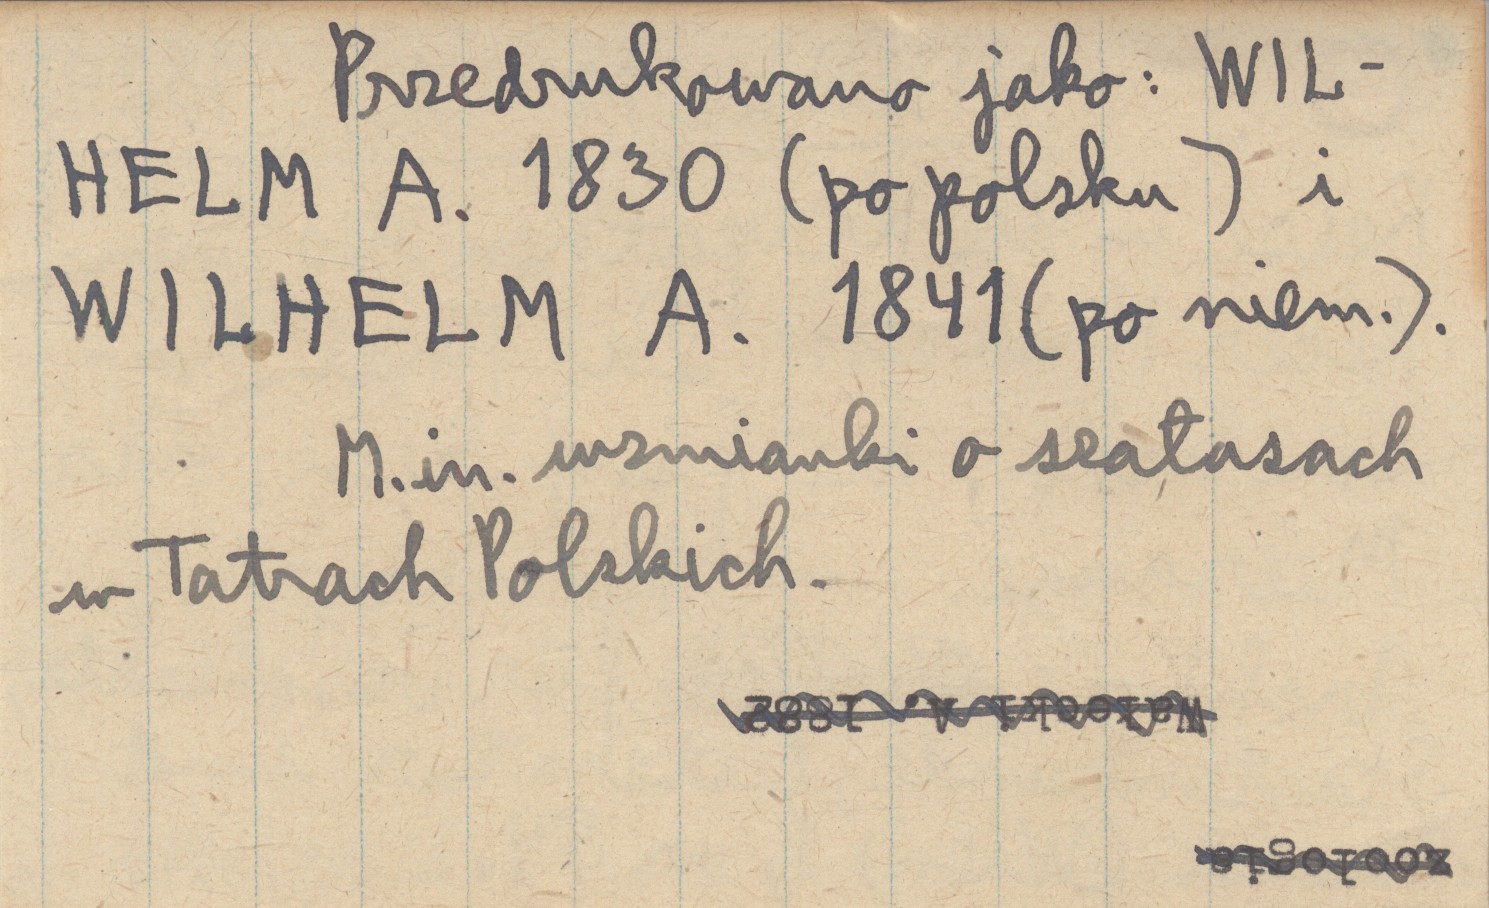 Przedrukowano jako: WIL-
HELM A. 1830 (po polsku) i
WILHELM A. 1841 (po niem.).
M.in. wzmianki o szałasach
w Tatrach Polskich.
Wałecki A. 1882
zoologia